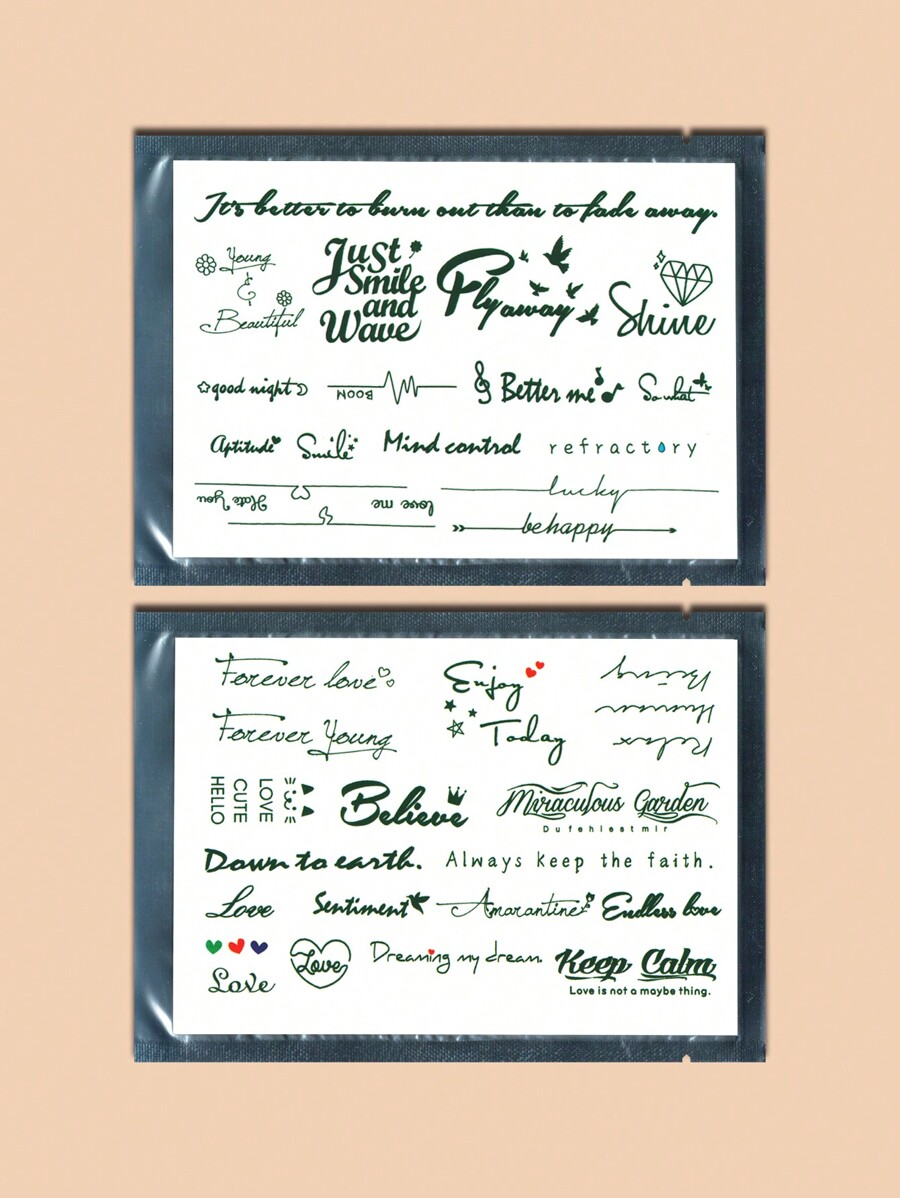 It's better to burn out than to fade away.
Young
&
Beautiful
Just
Smile
and
Wave
Fly away
Shine
good night
BOOM
Better me
So what
Aptitude
Smile
Mind control
refractory
Hate You
love me
lucky
behappy
Forever love
Forever Young
Enjoy
Today
Relax
Human
Being
HELLO
CUTE
LOVE
Believe
Miraculous Garden
Dufehlestmir
Down to earth.
Always keep the faith.
Love
Sentiment
Amarantine
Endless love
Love
Love
Dreaming my dream.
Keep Calm
Love is not a maybe thing.